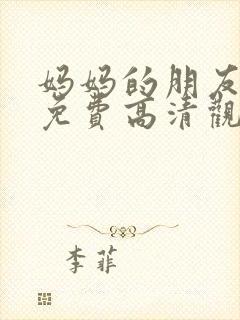 妈妈的朋友
免費高清觀
李菲